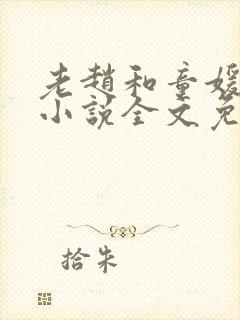 老趙和童媛
小說全文免
拾朱